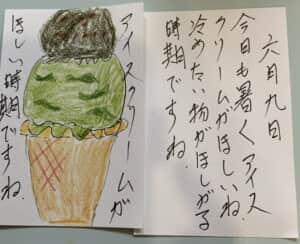 アイスクリームが
ほしい時期ですね
六月九日
今日も暑くアイス
クリームがほしいね。
冷めたい物がほしがる
時期ですね。